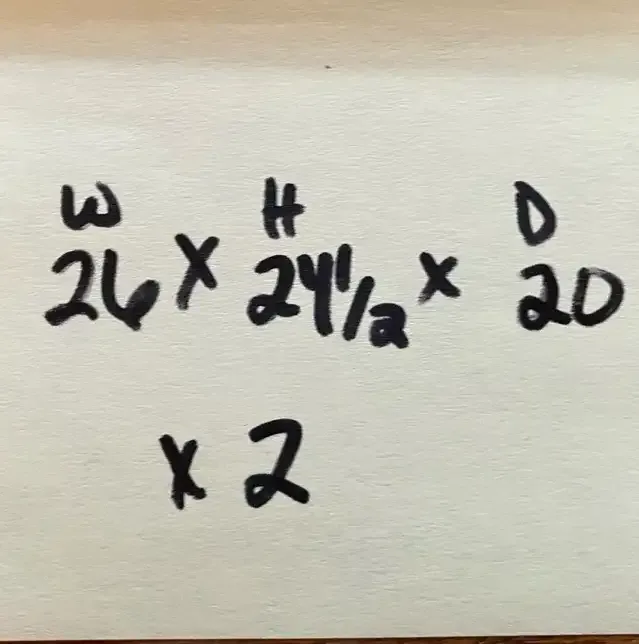 W H D
26 x 24 1/2 x 20
x 2